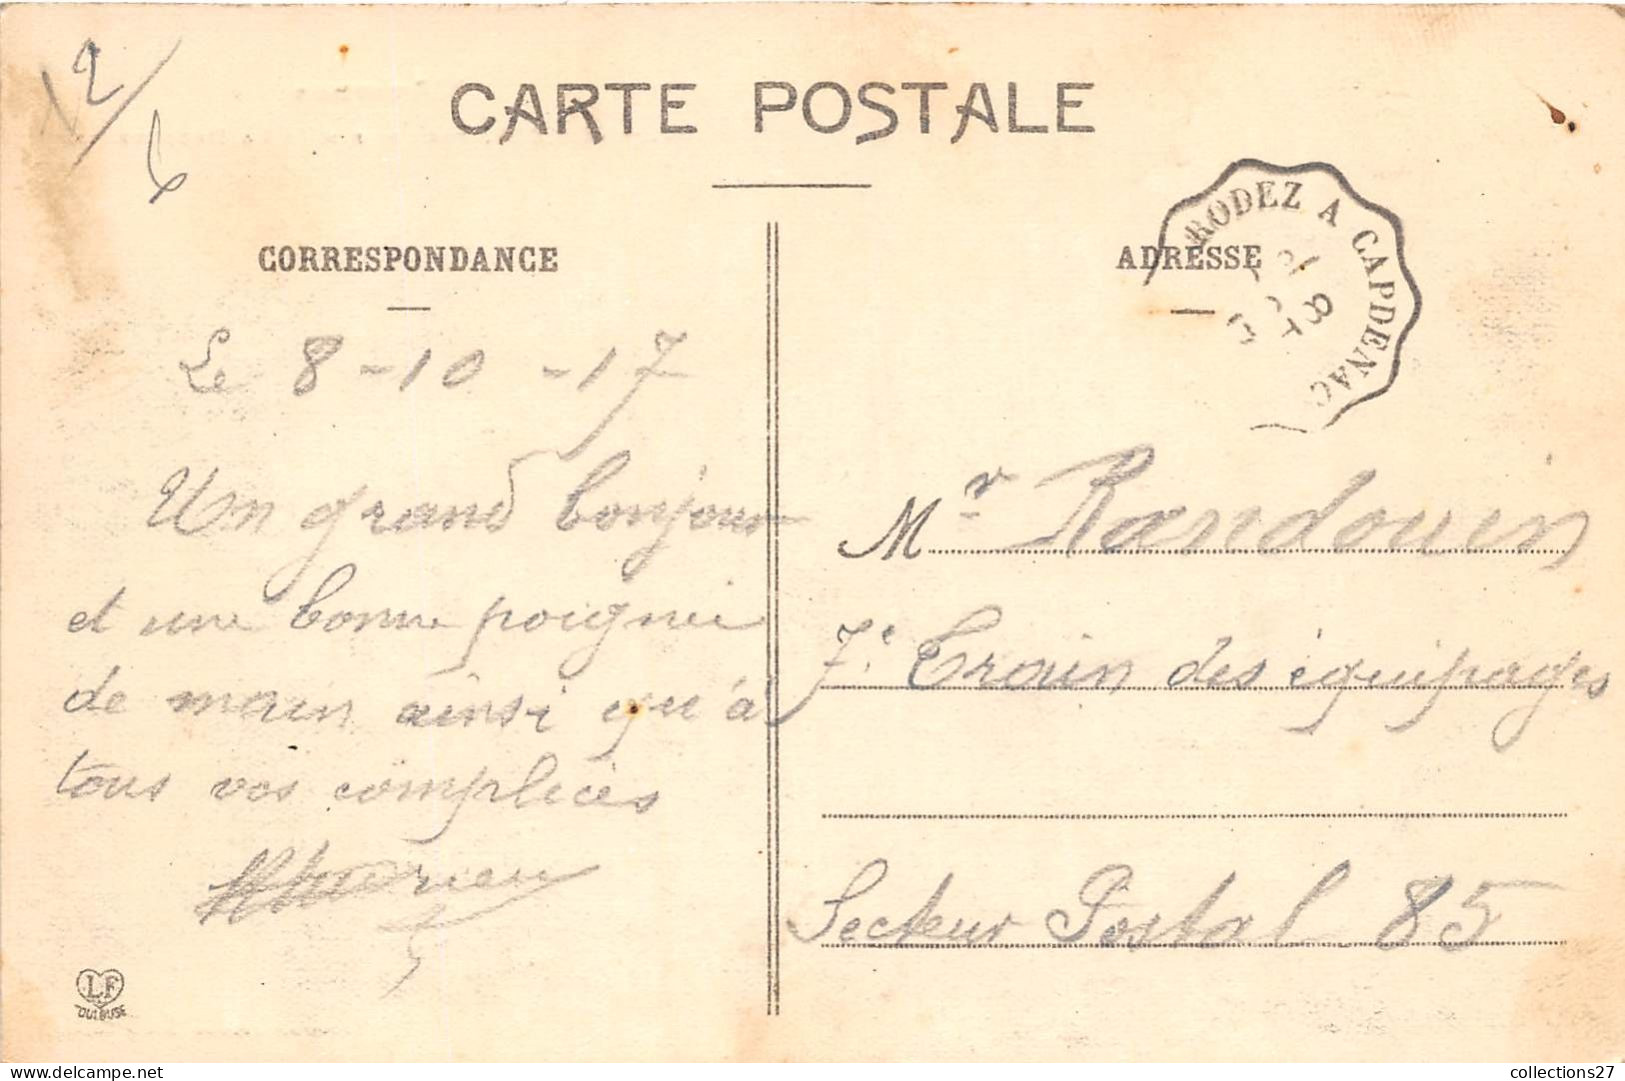 12/
6
CARTE POSTALE
CORRESPONDANCE
Le 8-10-17
Un grand bonjour
et une bonne poignée
de main ainsi qu'à
tous vos complices
LF
TOULOUSE
RODEZ A CAPDENAC
ADRESSE
Mr Randouin
7e Train des équipages
Secteur Postal 85
collections27